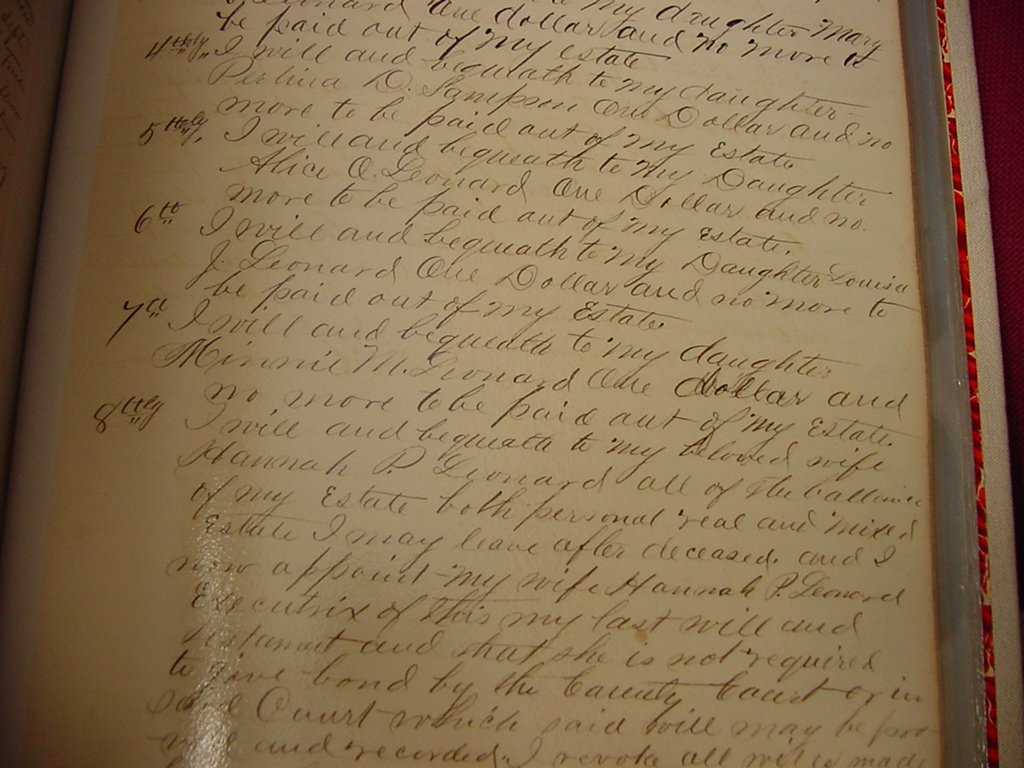 my daughter Mary
Leonard one dollar and no more to
be paid out of my estate
4thly I will and bequeath to my daughter
D. Simpson one Dollar and no
more to be paid out of my Estate
5thly I will and bequeath to my Daughter
Alice O Leonard one Dollar and no
more to be paid out of my Estate.
6th I will and bequeath to my Daughter Louisa
J. Leonard One Dollar and no more to
be paid out of my Estate
7th I will and bequeath to my daughter
Minnie M. Leonard One Dollar and
no more to be paid out of my Estate
8thly I will and bequeath to my beloved wife
Hannah P Leonard all of the ballance
of my Estate both personal real and mixed
Estate I may leave after deceased, and I
now appoint my wife Hannah P Leonard
Executrix of this my last will and
testament and that she is not required
to give bond by the County Court or in
any Court which said will may be pro-
and recorded, I revoke all wills made